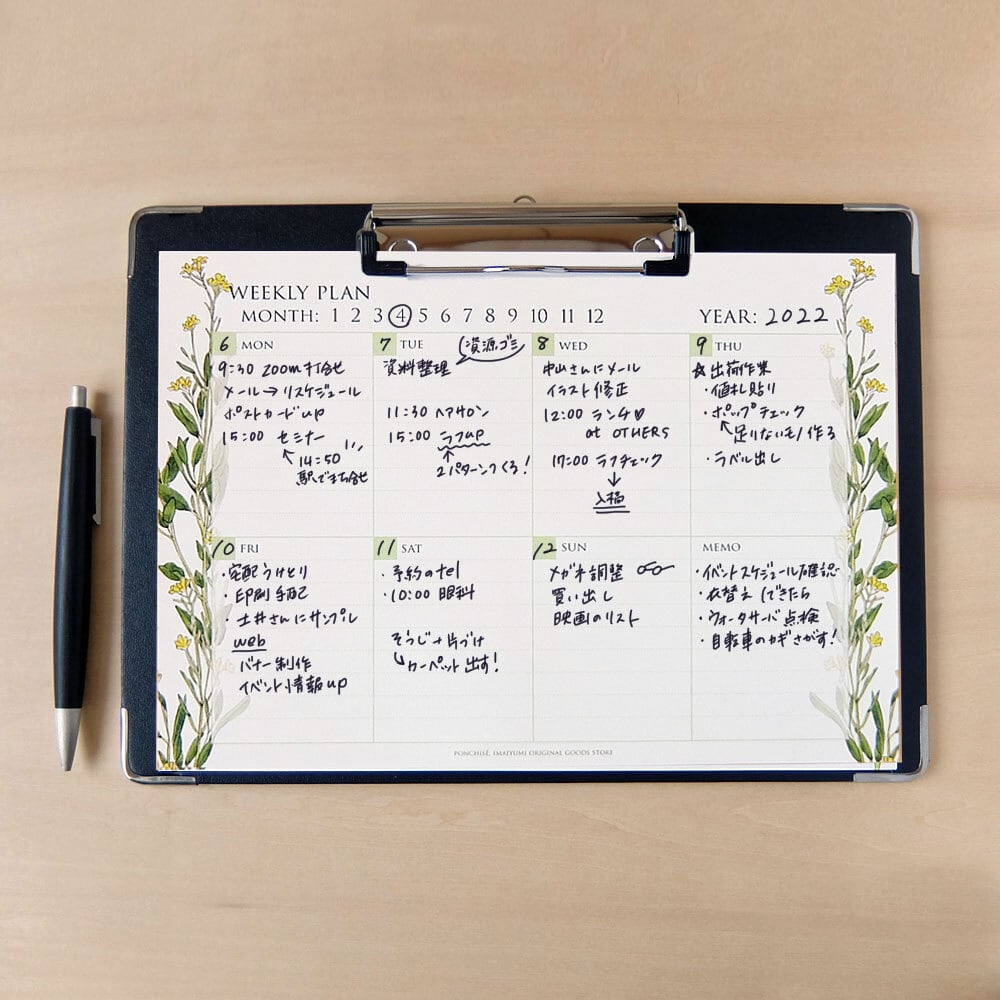 WEEKLY PLAN
MONTH: 1 2 3 4 5 6 7 8 9 10 11 12
YEAR: 2022
6 MON
9:30 zoom打合せ
メール→リスケジュール
ポストカードup
15:00 セミナー
14:50
駅で待ち合せ
7 TUE
資源ゴミ
資料整理
11:30 ヘアサロン
15:00 ラフup
2パターンつくる!
8 WED
中山さんにメール
イラスト修正
12:00 ランチ♡
at OTHERS
17:00 ラフチェック
↓
入稿
9 THU
☆出荷作業
・値札貼り
・ポップチェック
足りないモノ作る
・ラベル出し
10 FRI
・宅配うけとり
・印刷手配
・土井さんにサンプル
web
バナー制作
イベント情報up
11 SAT
・予約のtel
・10:00 眼科
そうじ+片づけ
カーペット出す!
12 SUN
メガネ調整
買い出し
映画のリスト
MEMO
・イベントスケジュール確認
・衣替え(できたら
・ウォーターサーバ点検
・自転車のカギさがす!
PONCHISÉ, IMAIYUMI ORIGINAL GOODS STORE